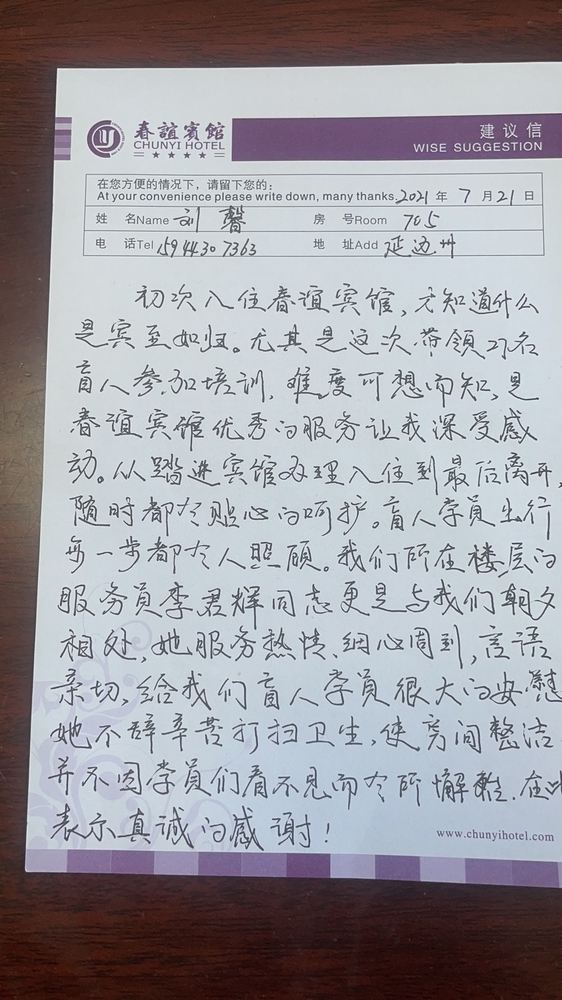 春誼賓館
CHUNYI HOTEL
建议信
WISE SUGGESTION
在您方便的情况下，请留下您的：
At your convenience please write down, many thanks. 2021 年 7 月 21 日
姓 名Name 刘馨 房 号Room 705
电 话Tel 15944307363 地 址Add 延边州
初次入住春谊宾馆，才知道什么
是宾至如归。尤其是这次带领 名
盲人参加培训，难度可想而知，是
春谊宾馆优秀的服务让我深受感
动。从踏进宾馆办理入住到最后离开，
随时都有贴心的呵护。盲人学员出行
每一步都有人照顾。我们所在楼层的
服务员李君辉同志更是与我们朝夕
相处，她服务热情、细心周到，言语
亲切，给我们盲人学员很大的安慰
她不辞辛苦打扫卫生，使房间整洁
并不因学员们看不见而有所懈怠。在此
表示真诚的感谢！
www.chunyihotel.com